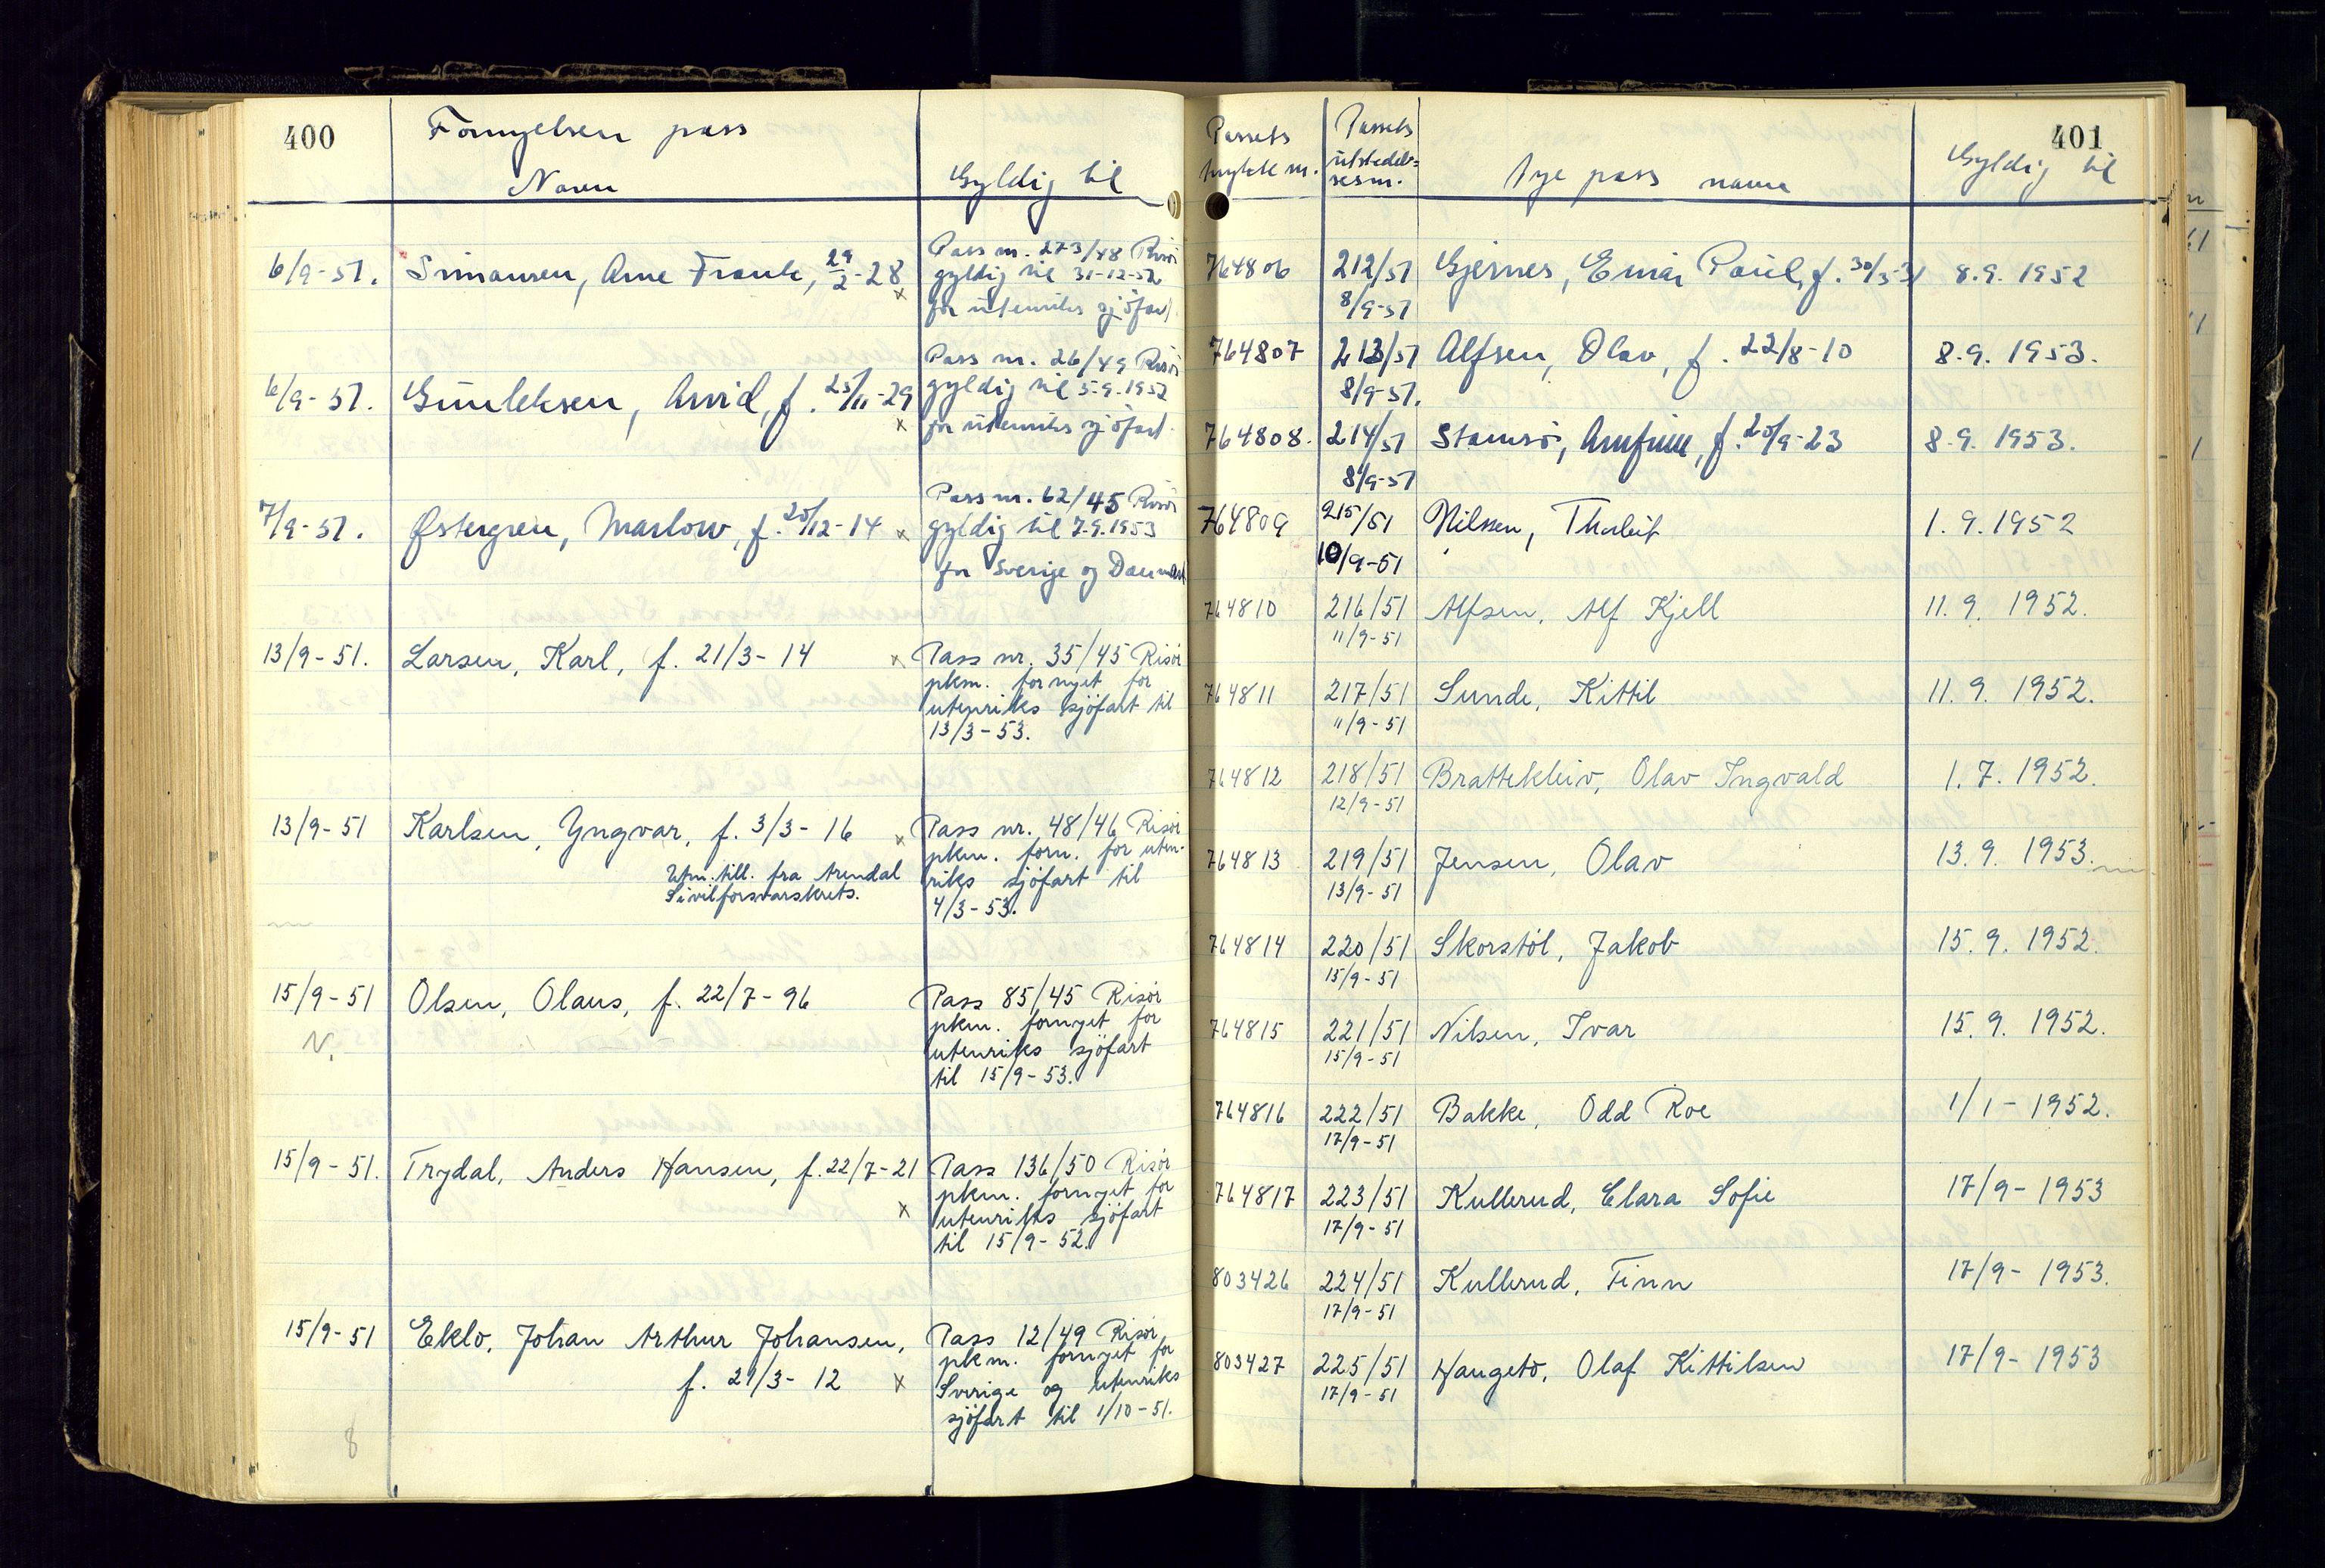 400
Fornyelsen pass
Navn
Gyldig til
6/9-51. Simonsen, Arne Frank, 29/2-28 x
Pass nr. 273/48 Risør
gyldig til 31-12-52
for utenriks sjöfart
6/9-51. Gunleksen, Arvid, f. 25/11-29 x
Pass nr. 26/49 Risør
gyldig til 5-9.1952
for utenriks sjöfart
7/9-51. Østergren, Marlow, f. 20/12-14 x
Pass nr. 62/45 Risør
gyldig til 7.9.1953
for Sverige og Danmark
13/9-51. Larsen, Karl, f. 21/3-14 x
Pass nr. 35/45 Risör
pkm. fornyet for
utenriks sjöfart til
13/3-53.
13/9-51 Karlsen, Yngvar, f. 3/3-16 x
Utm. till. fra Arendal
Sivilforsvarskrets.
Pass nr. 48/46 Risör
pkm. forn. for uten-
riks sjöfart til
4/3-53.
15/9-51 Olsen, Olaus, f. 22/7-96
N.
Pass 85/45 Risör
pkm. fornyet for
utenriks sjöfart
til 15/9-53.
15/9-51. Trydal, Anders Hansen, f. 22/7-21 x
Pass 136/50 Risör
pkm. fornyet for
utenriks sjöfart
til 15/9-52.
15/9-51 Eklo, Johan Arthur Johansen,
f. 21/3-12 x
Pass 12/49 Risör
pkm. fornyet for
Sverige og utenriks
sjöfart til 1/10-51.
8
401
Passets
trykte nr.
Passets
utstedel=
sesnr.
Nye pass navn
Gyldig til
764806 212/51 Gjernes, Einar Paul, f. 30/3-31 8.9. 1952
8/9-51
764807 213/51 Alfsen, Olav, f. 22/8-10 8.9. 1953.
8/9-51.
764808. 214/51 Stamsö, Arnfinn, f. 20/9-23 8.9. 1953.
8/9-51
764809 215/51 Nilssen, Thorleif 1.9.1952
10/9-51
764810 216/51 Alfsen, Alf Kjell 11.9. 1952.
11/9-51
764811 217/51 Sunde, Kittil 11.9. 1952.
11/9-51
764812 218/51 Brattekleiv, Olav Ingvald 1.7. 1952.
12/9-51
764813 219/51 Jensen, Olav 13.9. 1953.
13/9-51
764814 220/51 Skorstöl, Jakob 15.9. 1952.
15/9-51
764815 221/51 Nilsen, Ivar 15.9. 1952.
15/9-51
764816 222/51 Bakke, Odd Roe 1/1-1952.
17/9-51
764817 223/51 Kullerud, Clara Sofie 17/9-1953
17/9-51
803426 224/51 Kullerud, Finn 17/9-1953.
17/9-51
803427 225/51 Haugetö, Olaf Kittilsen 17/9-1953
17/9-51